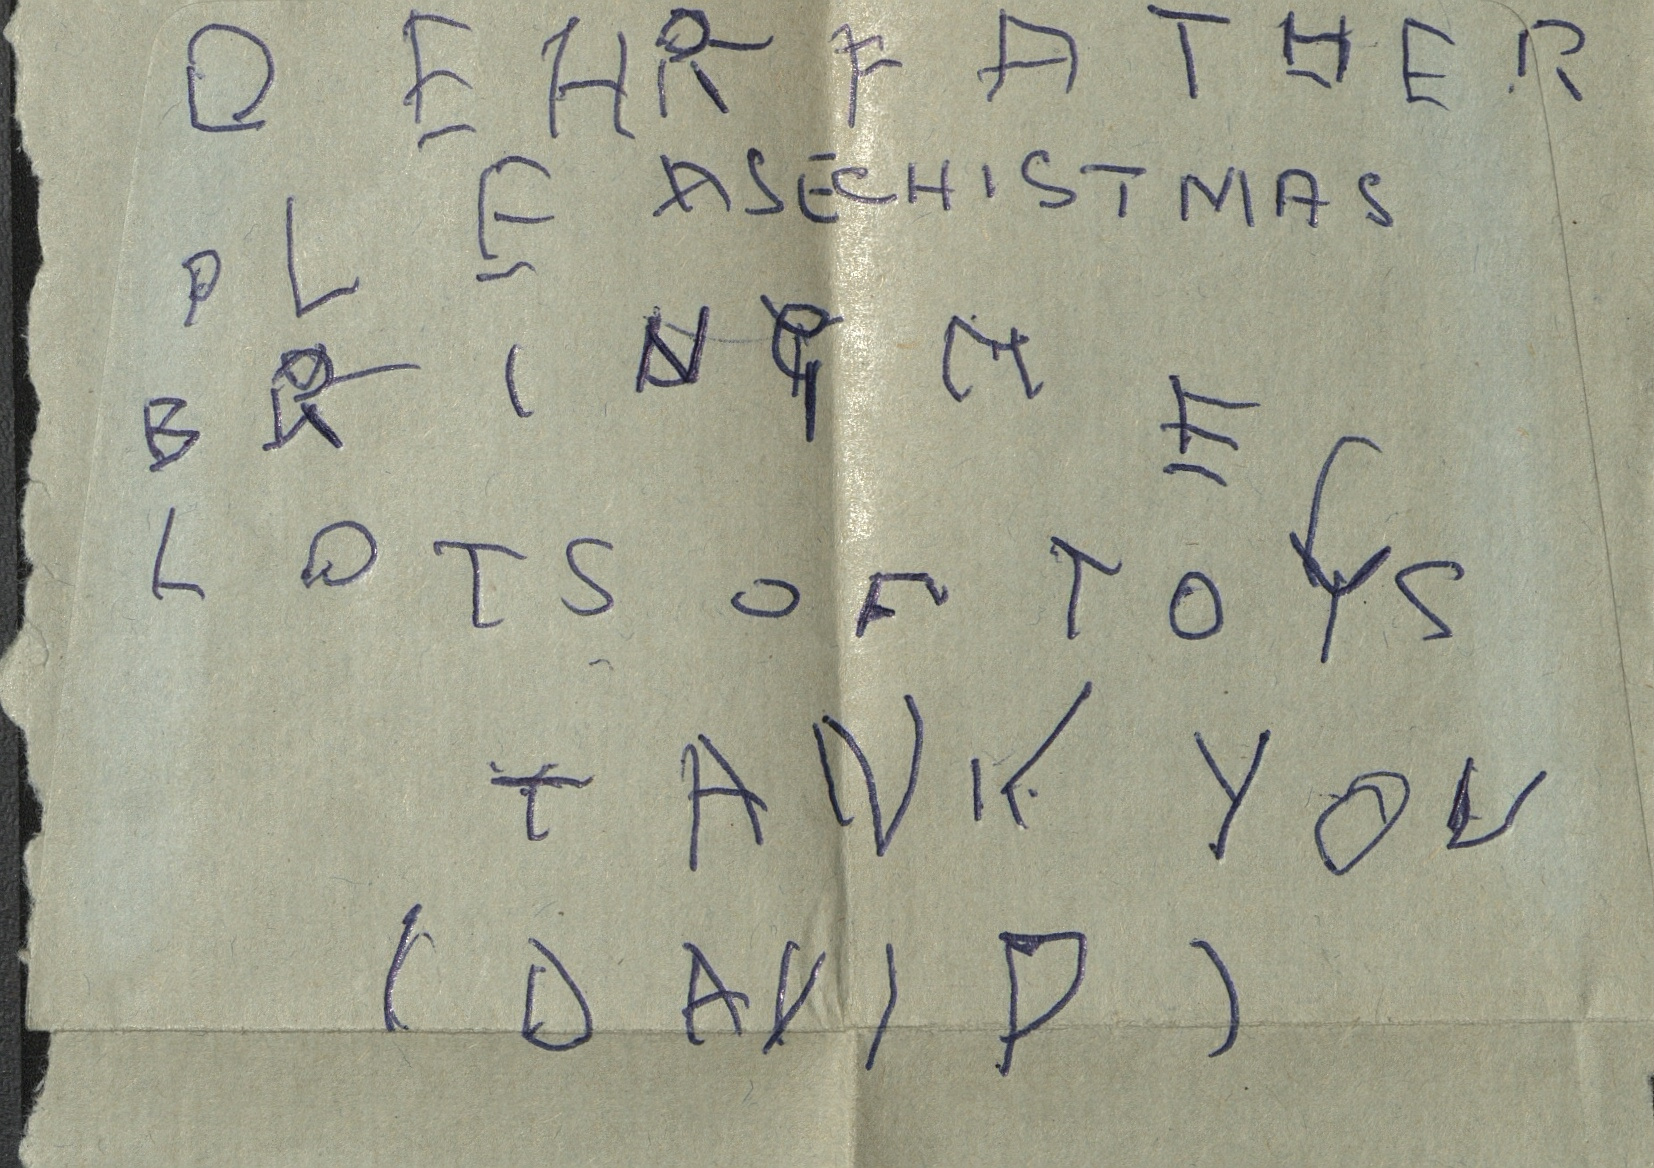 DEAR FATHER
PLEASE CHISTMAS
BRING ME
LOTS OF TOYS
TANK YOU
(DAVID)